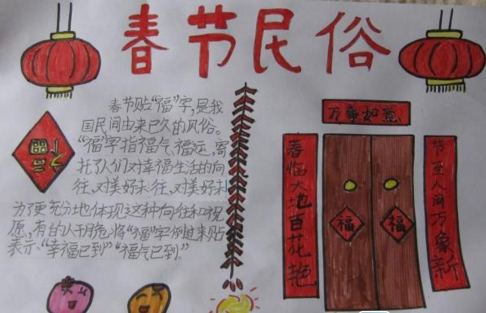 春节民俗
春节贴"福"字,是我
国民间由来已久的风俗。
"福"字指福气福运,寄
托了人们对幸福生活的向
往,对美好未往,对美好未
为了更充分地体现这种向往和祝
愿,有的人干脆将"福"字倒过来贴
表示:"幸福已到""福气已到".
福
万事如意
春临大地百花艳
节至人间万象新
福
福